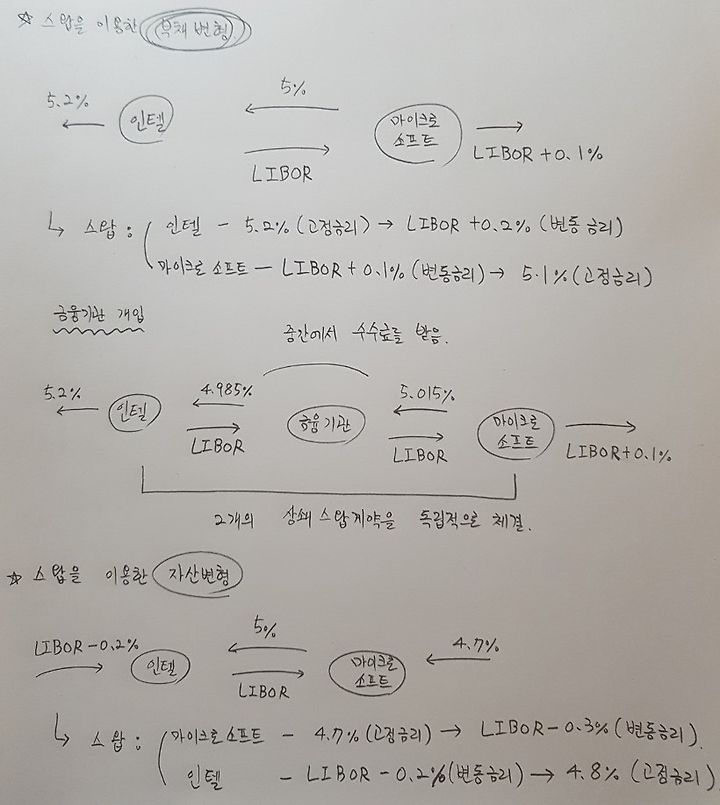 ☆ 스왑을 이용한 부채변형
5.2% 인텔 5% 마이크로
소프트
LIBOR LIBOR + 0.1%
↳ 스왑 : 인텔 - 5.2% (고정금리) → LIBOR +0.2% (변동 금리)
마이크로 소프트 - LIBOR + 0.1% (변동금리) → 5.1% (고정금리)
금융기관 개입
중간에서 수수료를 받음.
5.2% 4.985% 5.015%
인텔 금융기관 마이크로
소프트
LIBOR LIBOR LIBOR+0.1%
2개의 상쇄 스왑계약을 독립적으로 체결.
☆ 스왑을 이용한 자산변형
LIBOR-0.2% 5% 4.7%
인텔 마이크로
소프트
LIBOR
↳ 스왑 : 마이크로소프트 - 4.7% (고정금리) → LIBOR - 0.3% (변동금리).
인텔 - LIBOR - 0.2% (변동금리) → 4.8% (고정금리)